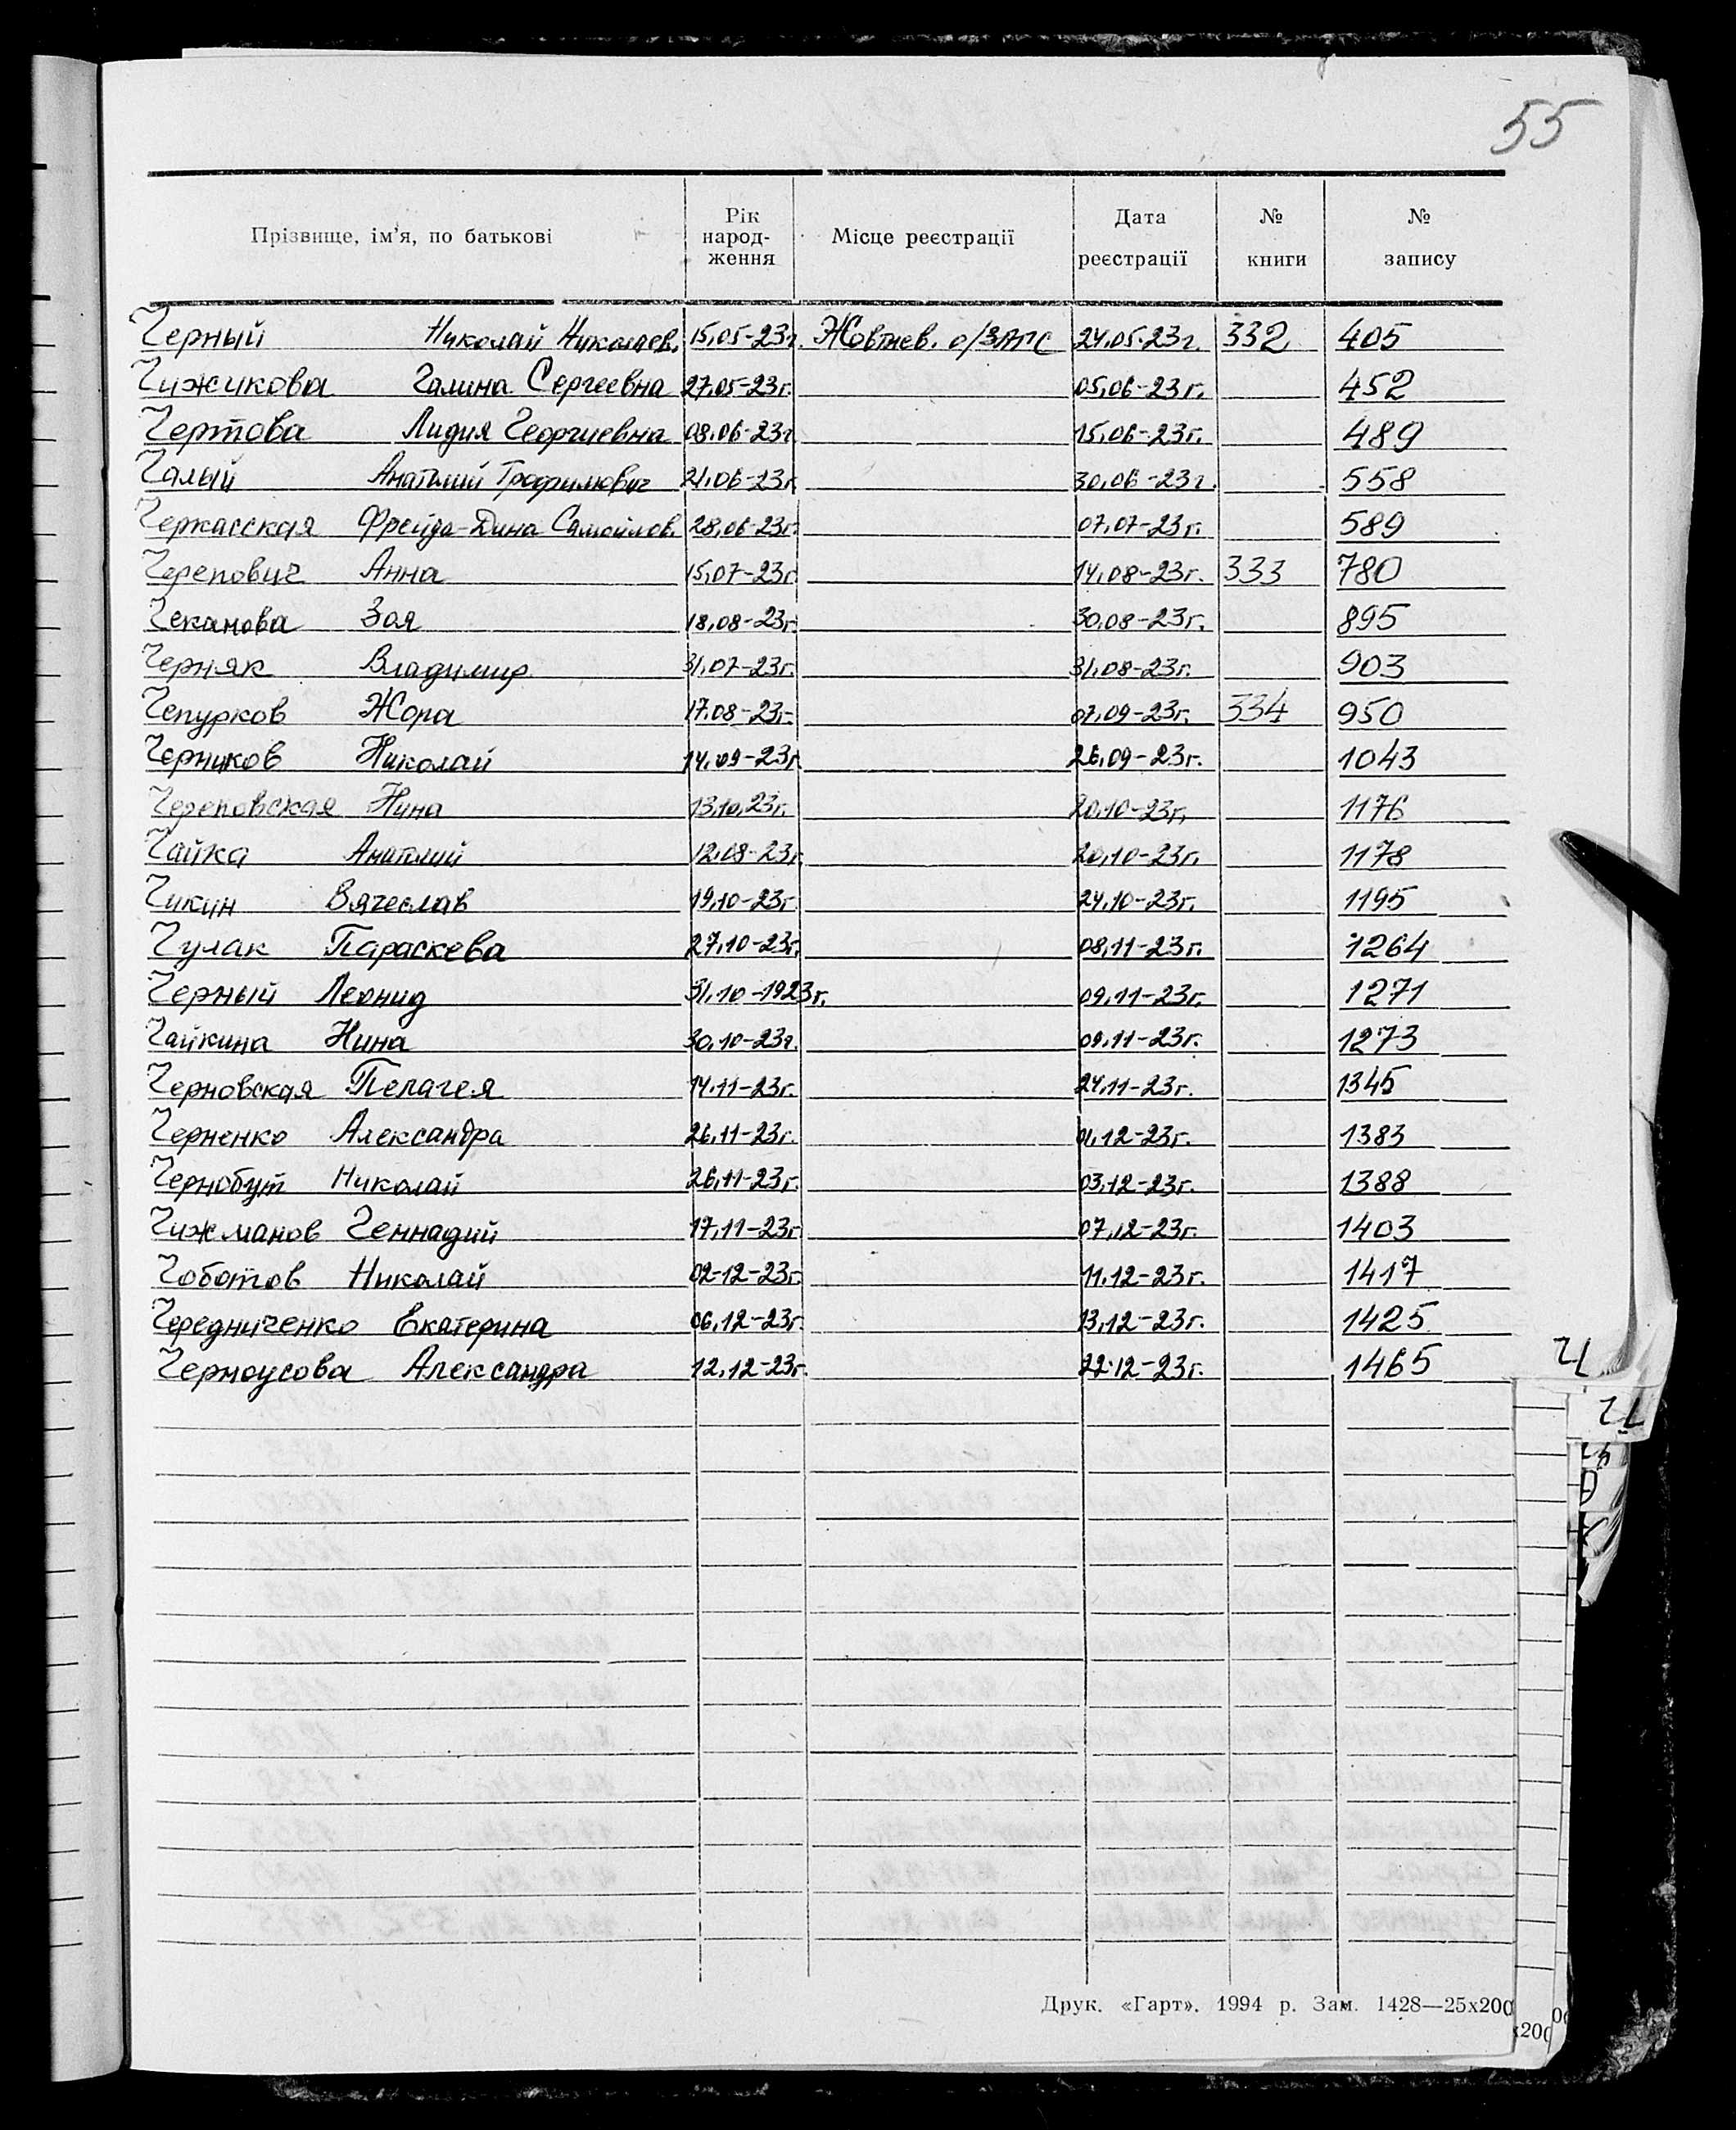 55
Прізвище, ім'я, по батькові Рік народ- ження Місце реєстрації Дата реєстрації № книги № запису
Черный Николай Николаев. 15.05-23г. Жовтнев. о/ЗАГС 24.05.23г. 332 405
Чижикова Галина Сергеевна 27.05-23г. 05.06-23г. 452
Чертова Лидия Георгиевна 08.06-23г 15.06-23г. 489
Чалый Анатолий Трофимович 21.06-23г. 30.06-23г. 558
Черкасская Фрейда-Дина Самойлов. 28.06-23г. 07.07-23г. 589
Черепович Анна 15.07-23г. 14.08-23г. 333 780
Чеканова Зоя 18.08-23г. 30.08-23г. 895
Черняк Владимир 31.07-23г. 31.08-23г. 903
Чепурков Жора 17.08-23г. 07.09-23г. 334 950
Черников Николай 14.09-23г. 26.09-23г. 1043
Череповская Нина 13.10.23г. 20.10-23г. 1176
Чайка Анатолий 12.08-23г. 20.10-23г. 1178
Чикин Вячеслав 19.10-23г. 24.10-23г. 1195
Чулак Параскева 27.10-23г. 08.11-23г. 1264
Черный Леонид 31.10-1923г. 09.11-23г. 1271
Чайкина Нина 30.10-23г. 09.11-23г. 1273
Черновская Пелагея 14.11-23г. 24.11-23г. 1345
Черненко Александра 26.11-23г. 01.12-23г. 1383
Чернобут Николай 26.11-23г. 03.12-23г. 1388
Чижманов Геннадий 17.11-23г. 07.12-23г. 1403
Чоботов Николай 02-12-23г. 11.12-23г. 1417
Чередниченко Екатерина 06.12-23г. 13.12-23г. 1425
Черноусова Александра 12.12-23г. 22.12-23г. 1465
Ч
Друк. «Гарт». 1994 р. Зам. 1428—25х200